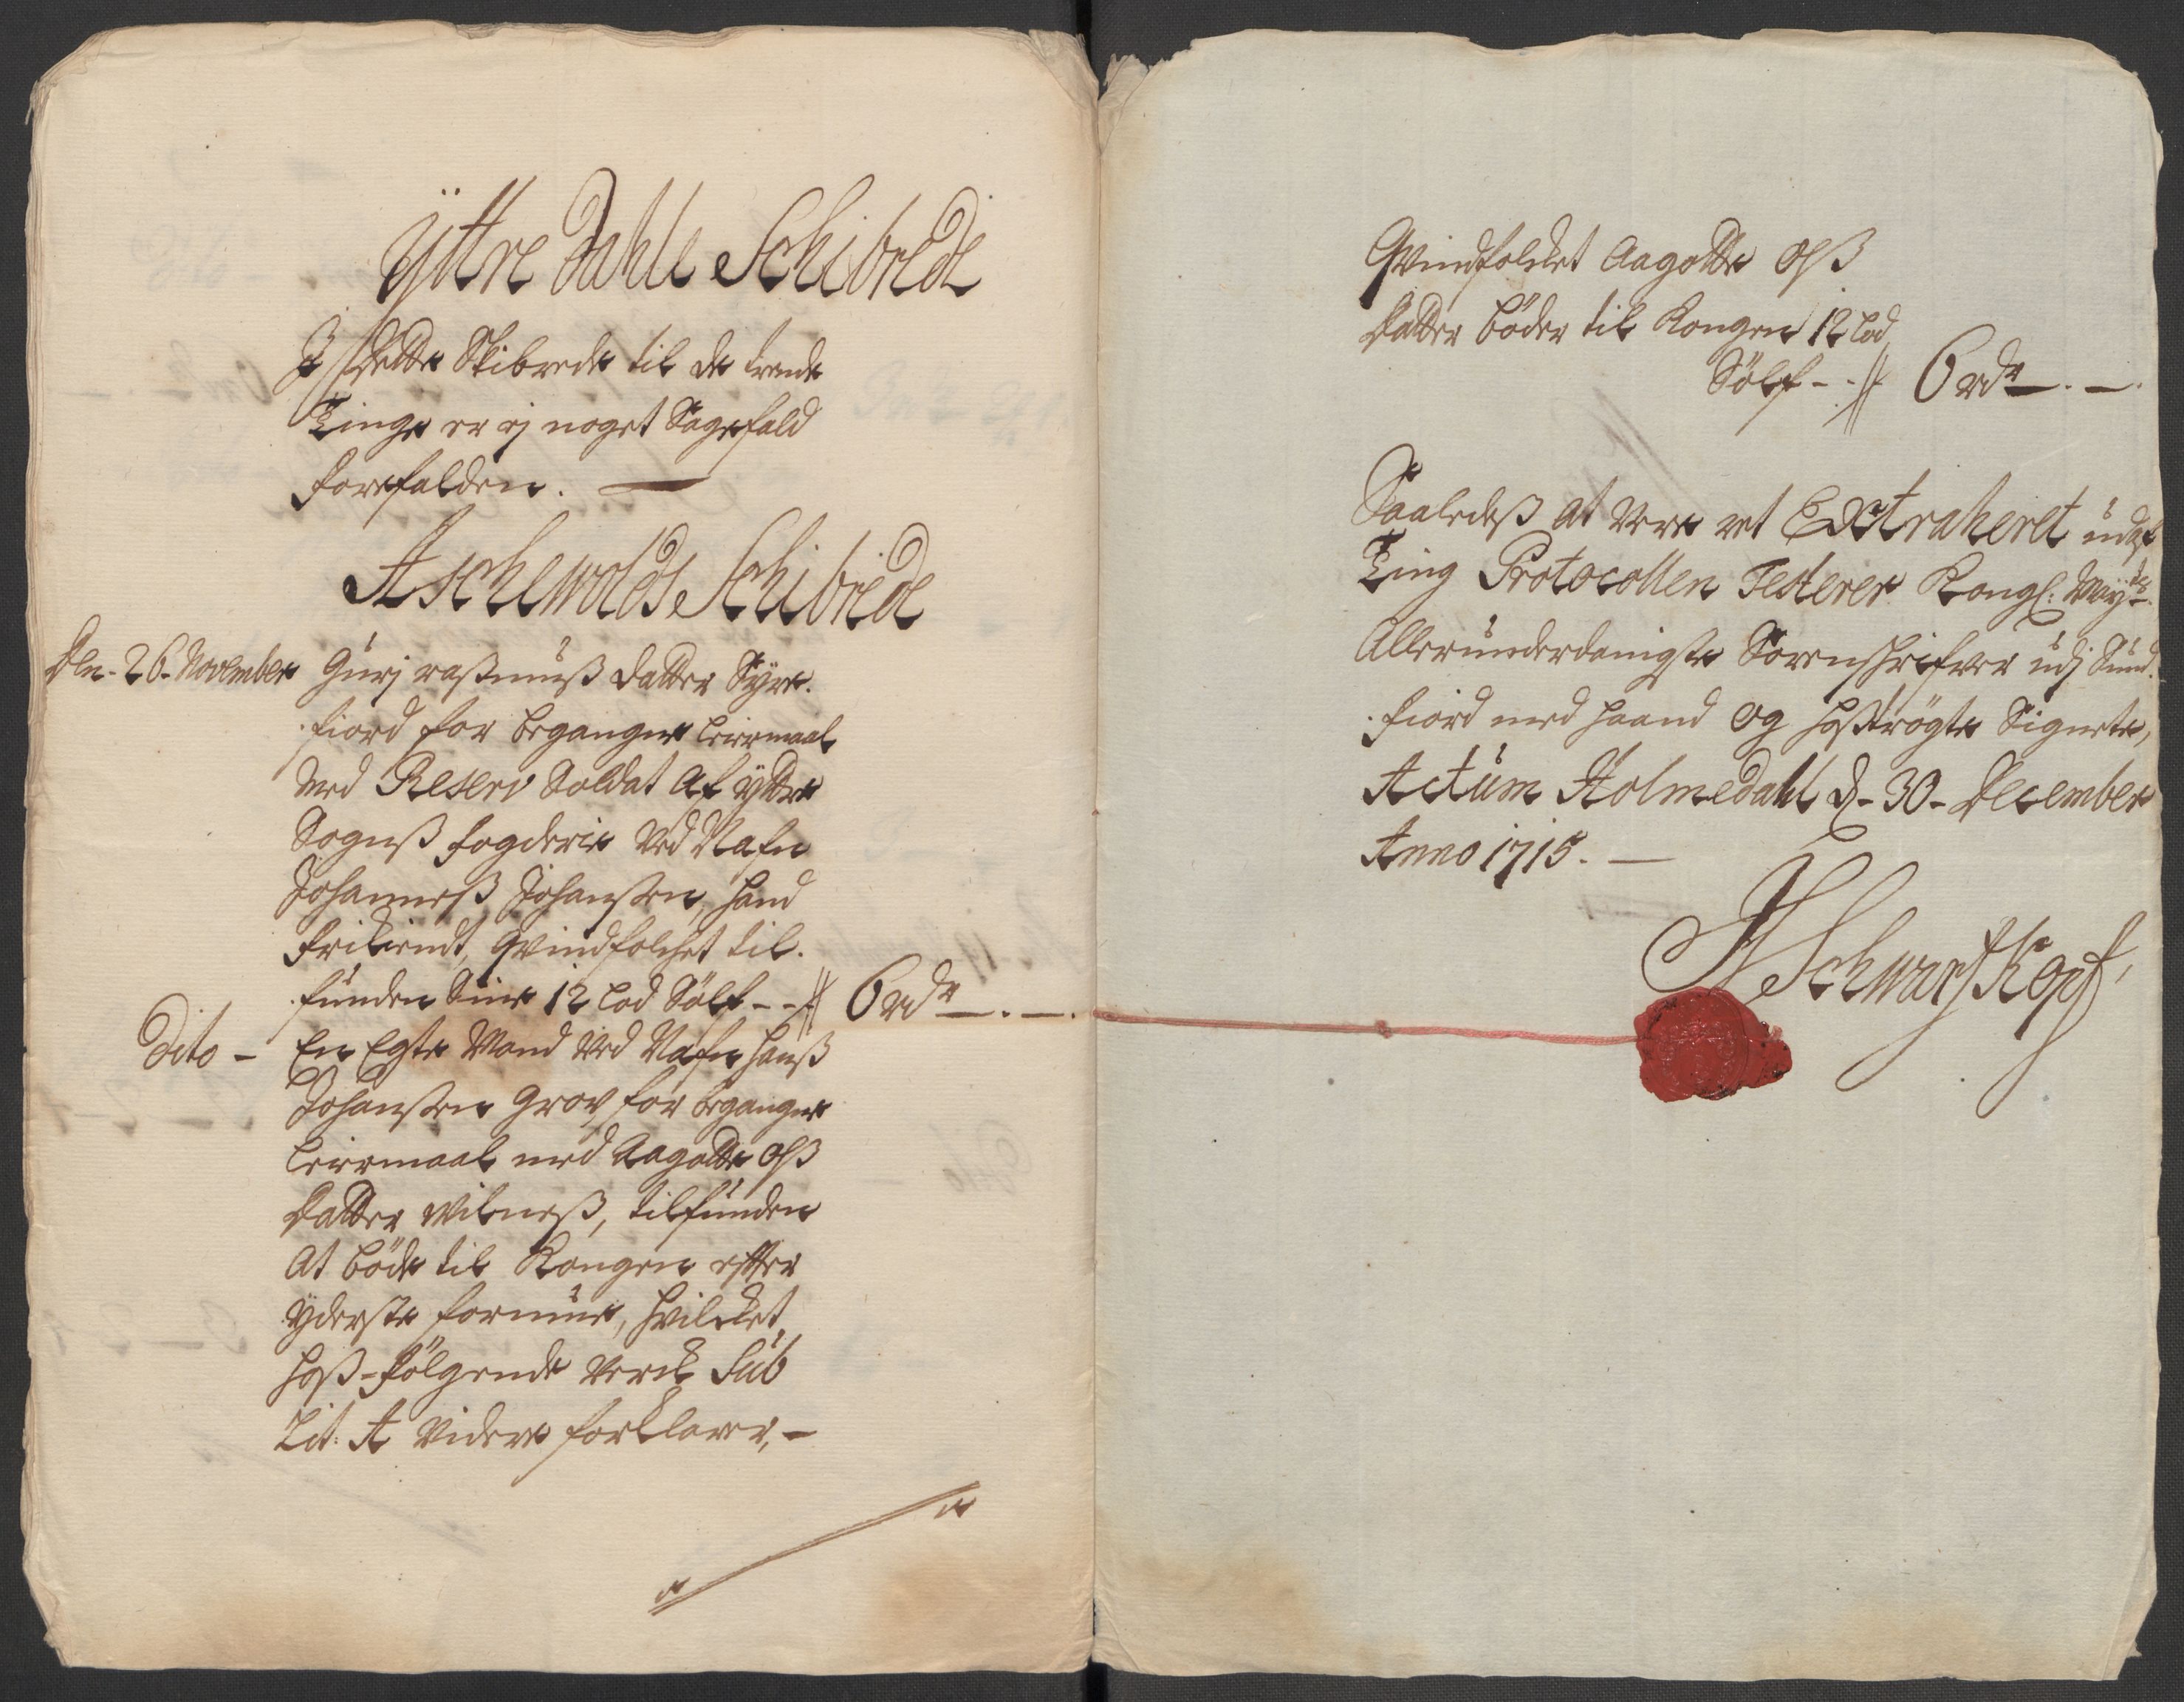 Ÿttre Dahle Schibrede
I dette Skibrede til de trende
Tinge er ej noget Sagefald
forefalden.
Aschewolds Schibrede
Den 26 November Gurj rasmusß datter Syre-
fiord for begangne leiermaal
med Reserv Soldat af Ÿttre
Sognß fogderie ved Nafn
Johanneß Johanßen, hand
frikiendt, qvindfolchet til-
funden Sine 12 lod Sölf -- 6 rdr — . — .
Dito - En Egte Mand ved Nafn Hanß
Johanßen Grov, for begangne
leiermaal med Aagatte Olß
datter Wilneß, tilfunden
at böde til Kongen effter
ÿderste formue, hvilcket
hoß-fölgende Verck Sub
Lit: A videre forklarer, -
Qvindfolcket Aagatte Olß
datter böder til Kongen 12 lod
Sölf - - 6 rdr — . — .
Saaledeß at være ret Extraheret udaf
Ting Protocollen Testerer Kongl: Maÿts
Allerunderdanigste Sorenskrifver udj Sund-
fiord med haand og hoßtrögte Signete,
Actum Holmedahl d- 30- December
Anno 1715. —
H Schwartzkopf